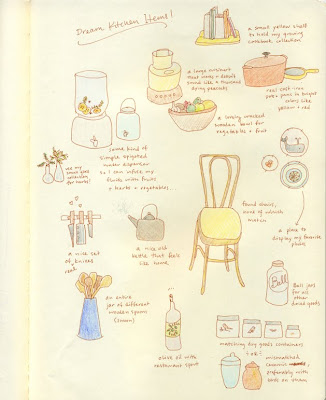 Dream Kitchen Items!
a small yellow shelf
to hold my growing
cookbook collection
a large cuisinart
that looks + sounds like a thousand
dying peacocks
real cast-iron
pots + pans in bright
colors like
yellow + red
a lovely wooden bowl for
vegetables + fruit
some kind of
simple spigoted
water dispenser
so I can infuse my
fluids with fruits
+ herbs + vegetables...
use my
small vase
collection
for herbs!
found chairs,
none of which
match
a place to
display my favorite
plates
a nice set
of knives
a nice old
kettle that feels
like home
Ball
Ball jars
for all
other dried
goods
an entire
jar of different
wooden spoons
olive oil with
restaurant spout
matching dry goods containers
+ or
mismatched
ceramic
preferably with
birds on them